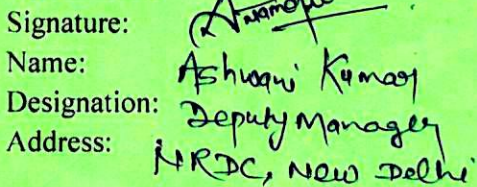 Signature:
Name: Ashwani Kumar
Designation: Deputy Manager
Address: NRDC, New Delhi